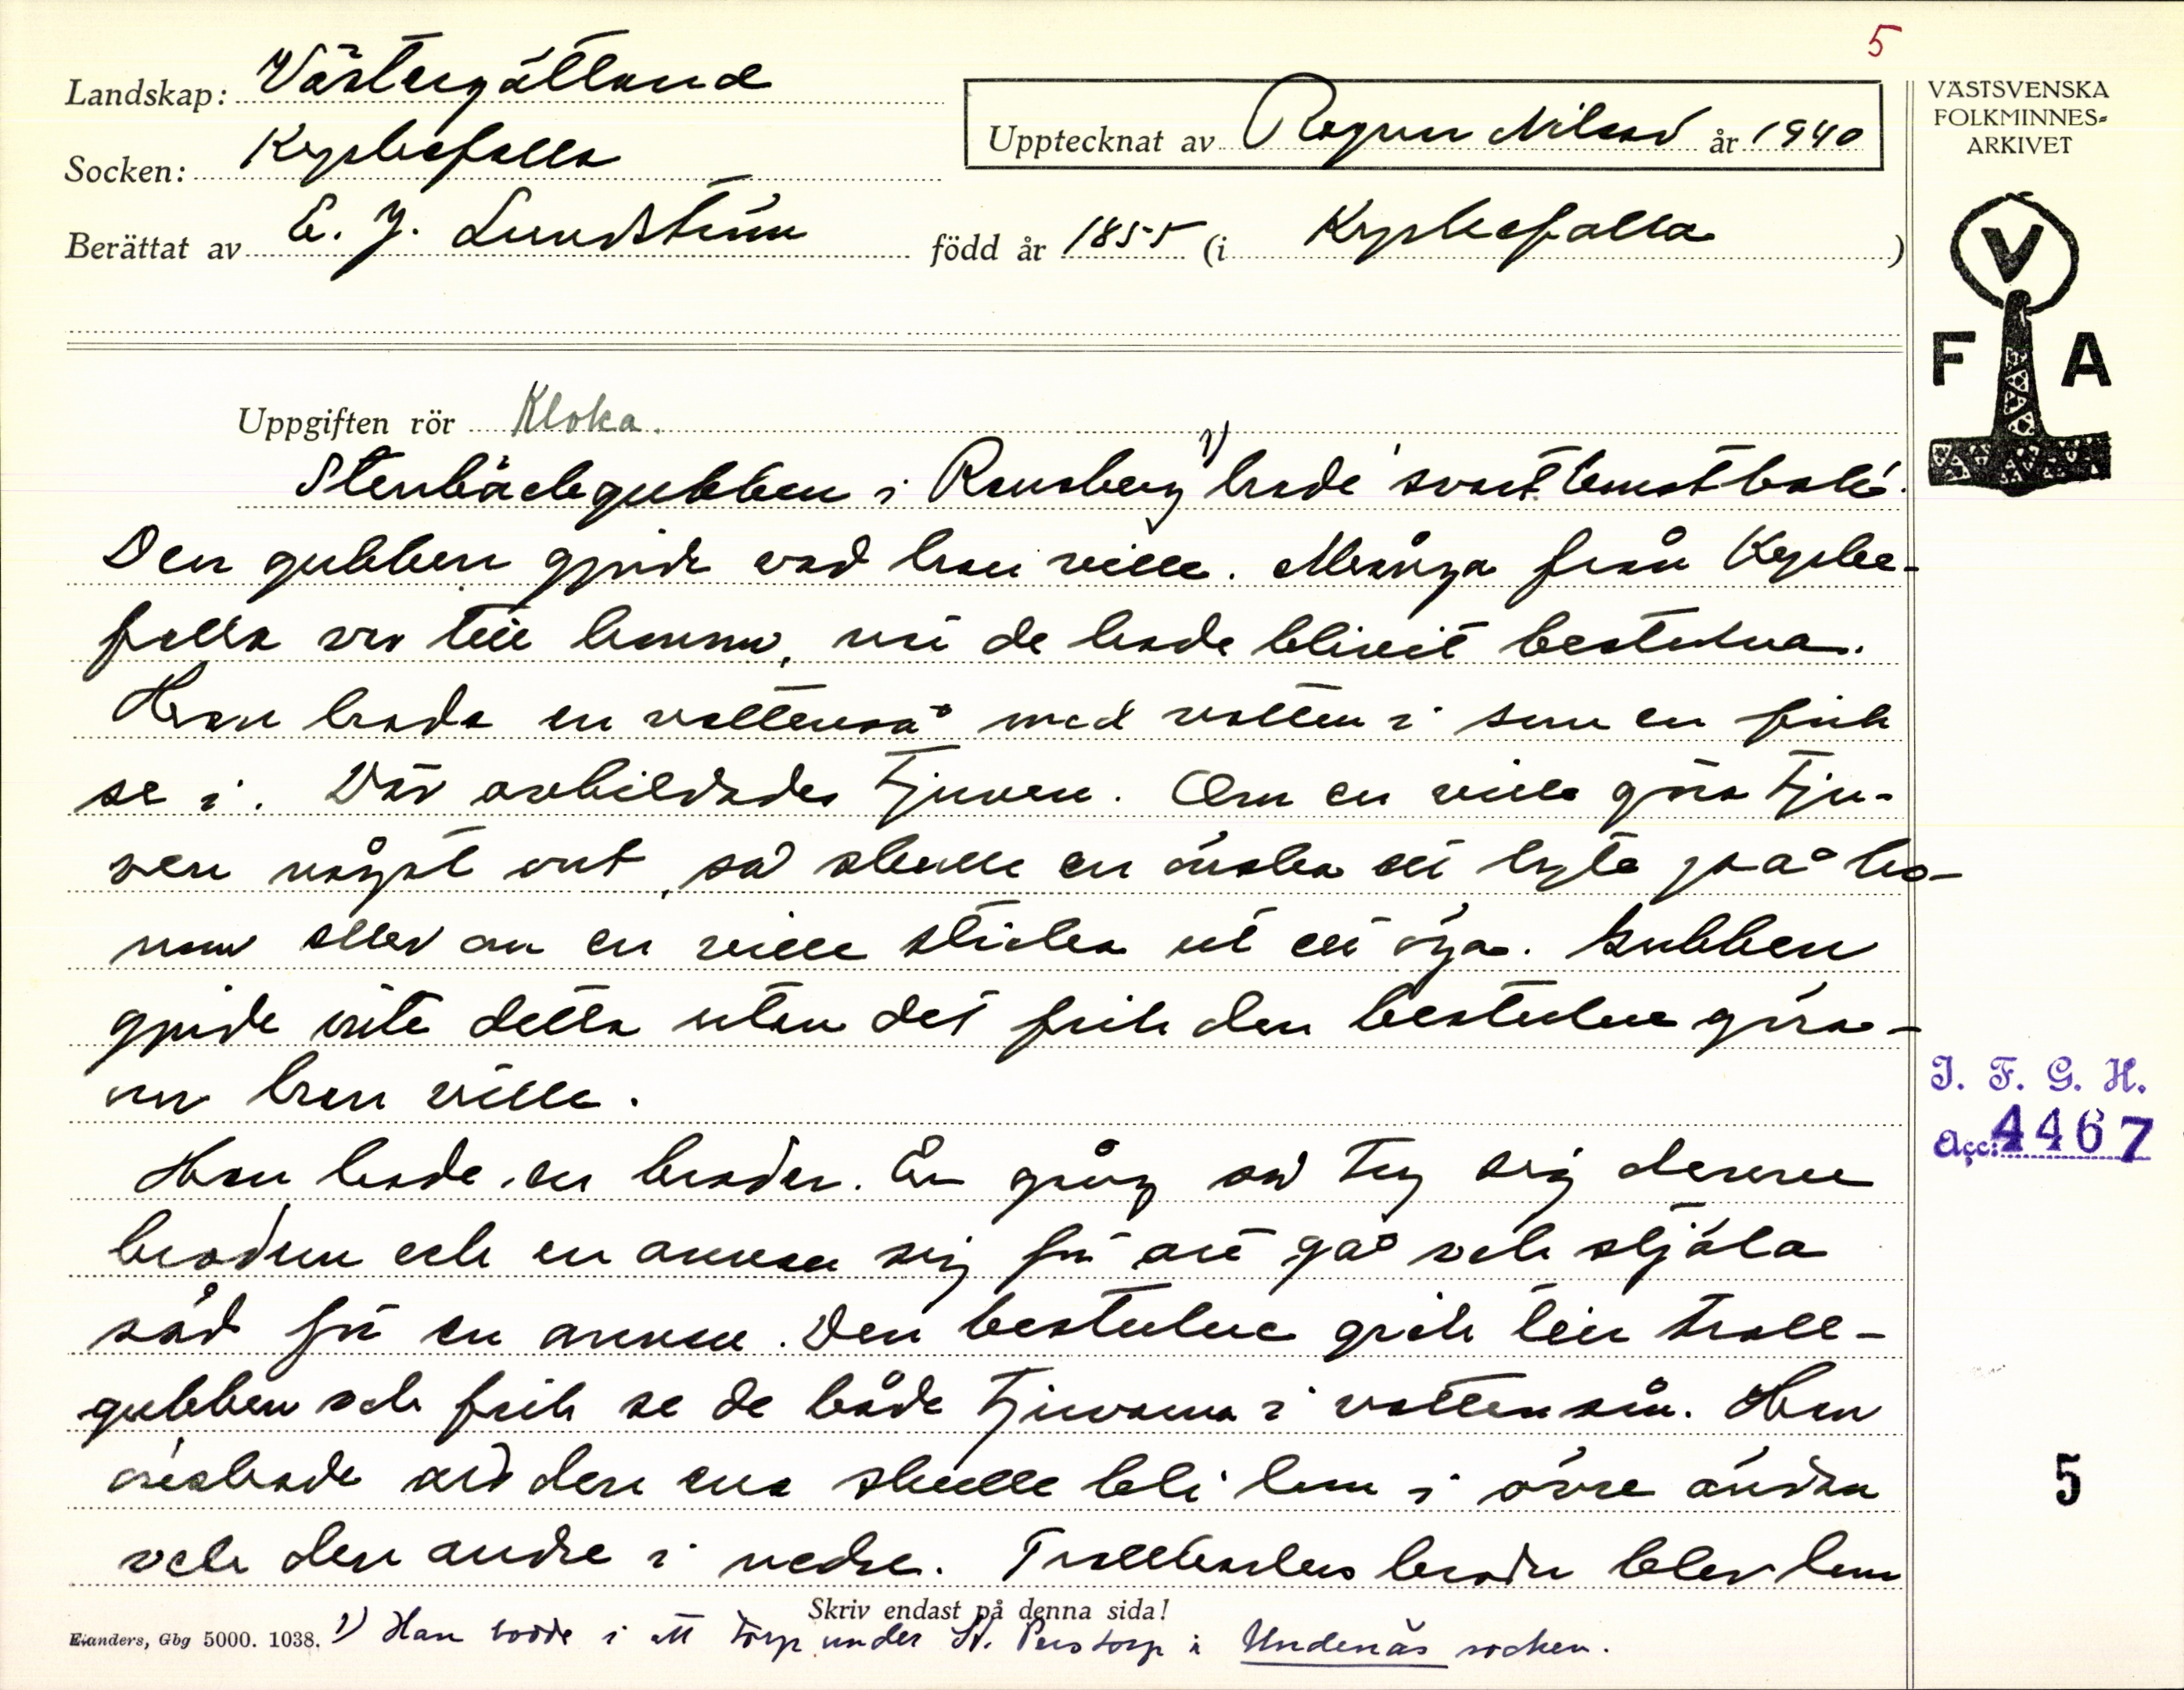 5
Landskap: Västergötland
Socken: Kyrkefalla
Upptecknat av Ragnar Nilsson år 1940
Berättat av E. J. Lundström född år 1855 (i Kyrkefalla)
VÄSTSVENSKA
FOLKMINNES-
ARKIVET
V
F A
Uppgiften rör Kloka.
Stenbäcksgubben i Ransberg 1) hade svartkonstbok.
Den gubben gjorde vad han ville. Många från Kyrke-
falla var till honom, när de hade blivit bestulna.
Han hade en vattenså med vatten i som en fick
se i. Där avbildades tjuven. Om en ville göra tju-
ven något ont, så skulle en önska ett lyte på ho-
nom eller om en ville sticka ut ett öga. Gubben
gjorde inte detta utan det fick den bestulne göra
om han ville.
Han hade en broder. En gång så tog sig denne
brodern och en annan sig för att gå och stjäla
säd för en annan. Den bestulne gick till troll-
gubben och fick se de både tjuvarna i vattensån. Han
önskade att den ena skulle bli lam i övre ändan
och den andre i nedre. Trollkarlens broder blev lam
Skriv endast på denna sida!
Eianders, Gbg 5000. 1038. 1) Han bodde i ett torp under St. Perstorp i Undenäs socken.
I. F. G. H.
Acc: 4467
5